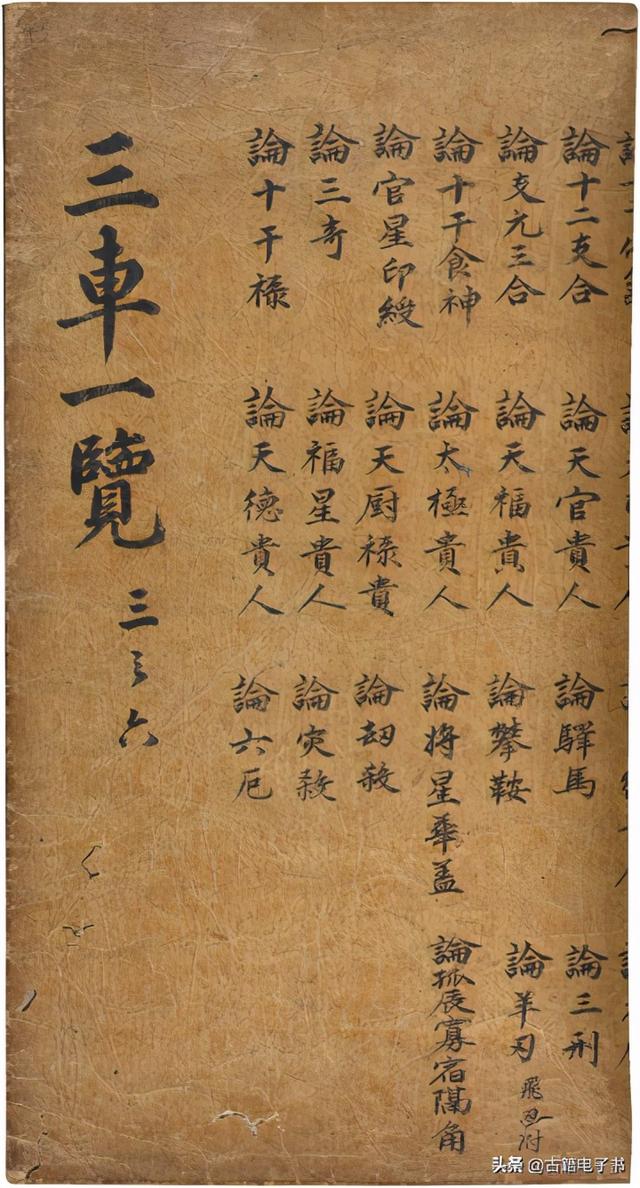 三車一覽
三之六
論十二支合
論支元三合
論十干食神
論官星印綬
論三奇
論十干禄
論天官貴人
論天福貴人
論太極貴人
論天厨禄貴
論福星貴人
論天德貴人
論驛馬
論攀鞍
論将星華盖
論刼殺
論灾殺
論六厄
論三刑
論羊刃 飛刃附
論孤辰寡宿隔角
头条 @古籍电子书